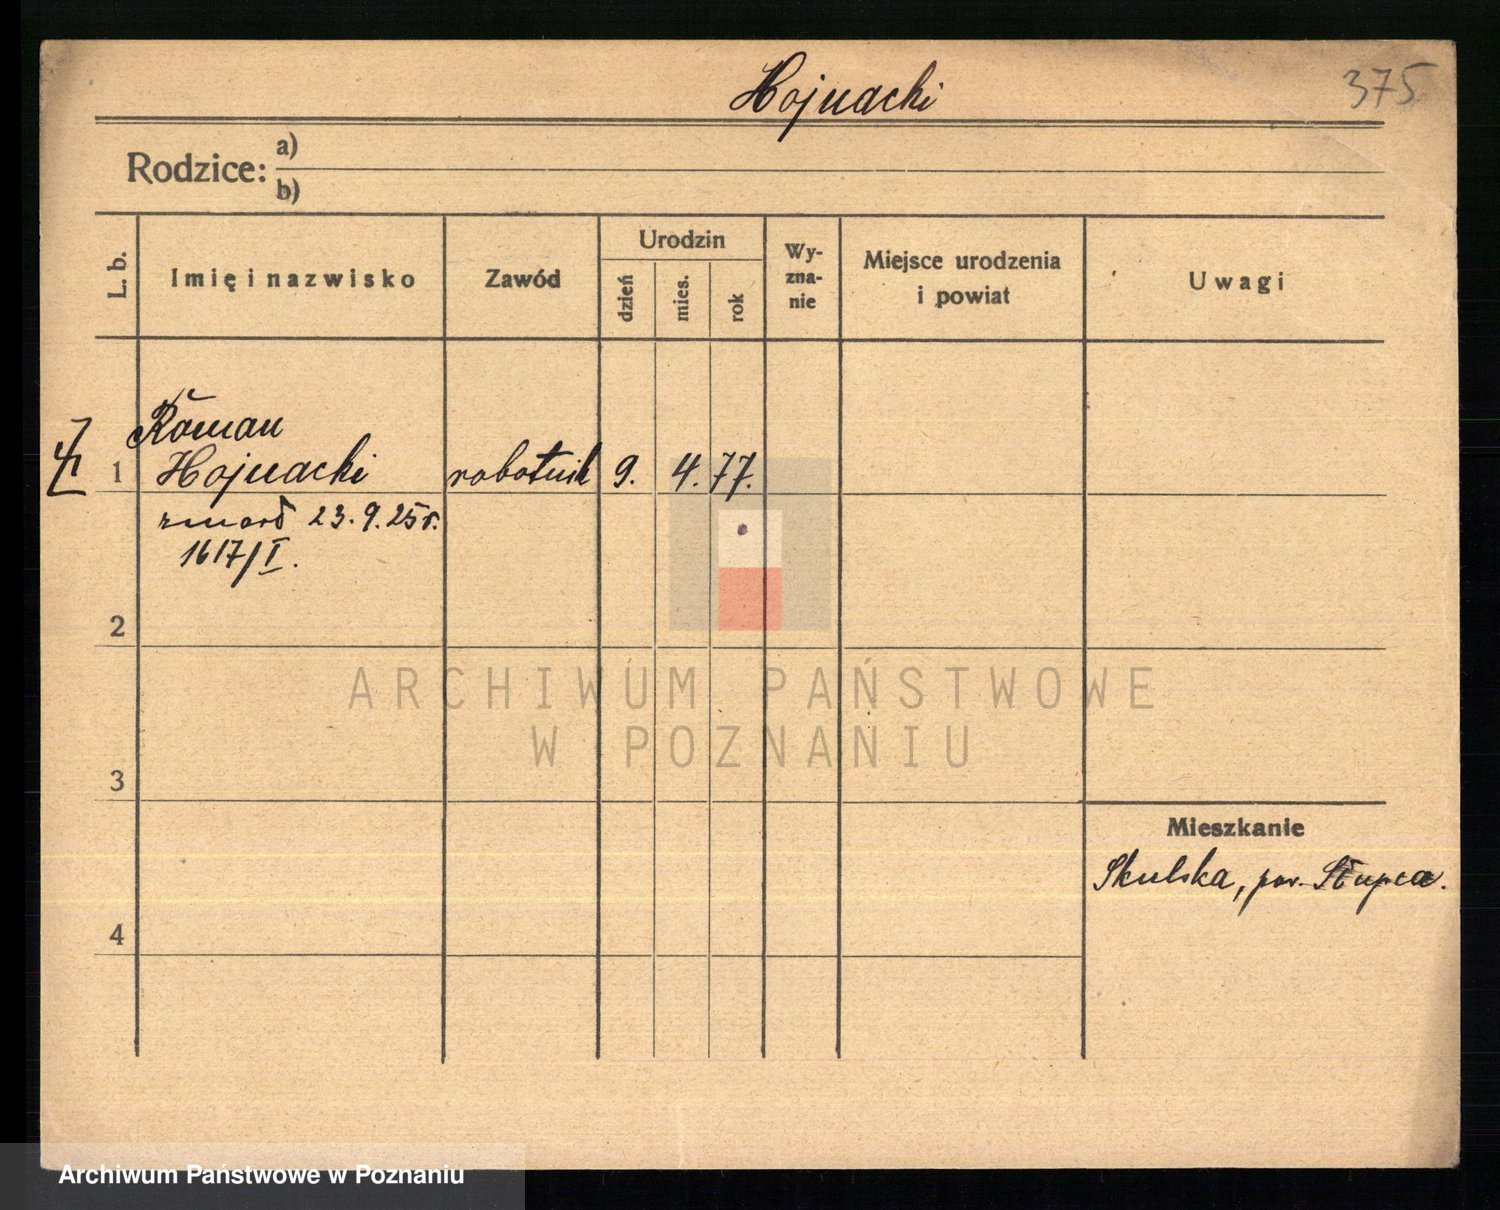 Hojnacki
375
Rodzice: a)
b)
L. b.
Imię i nazwisko
Zawód
Urodzin
dzień
mies.
rok
Wy-
zna-
nie
Miejsce urodzenia
i powiat
Uwagi
Roman
1 Hojnacki robotnik 9. 4. 77.
zmarł 23. 9. 25 r.
1617/I.
2
ARCHIWUM PAŃSTWOWE
W POZNANIU
3
Mieszkanie
Skulska, pow. Słupca.
4
Archiwum Państwowe w Poznaniu